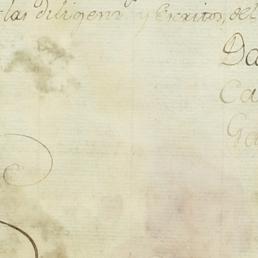 las diligenc y Escritos, del
Da
Ca
Ga